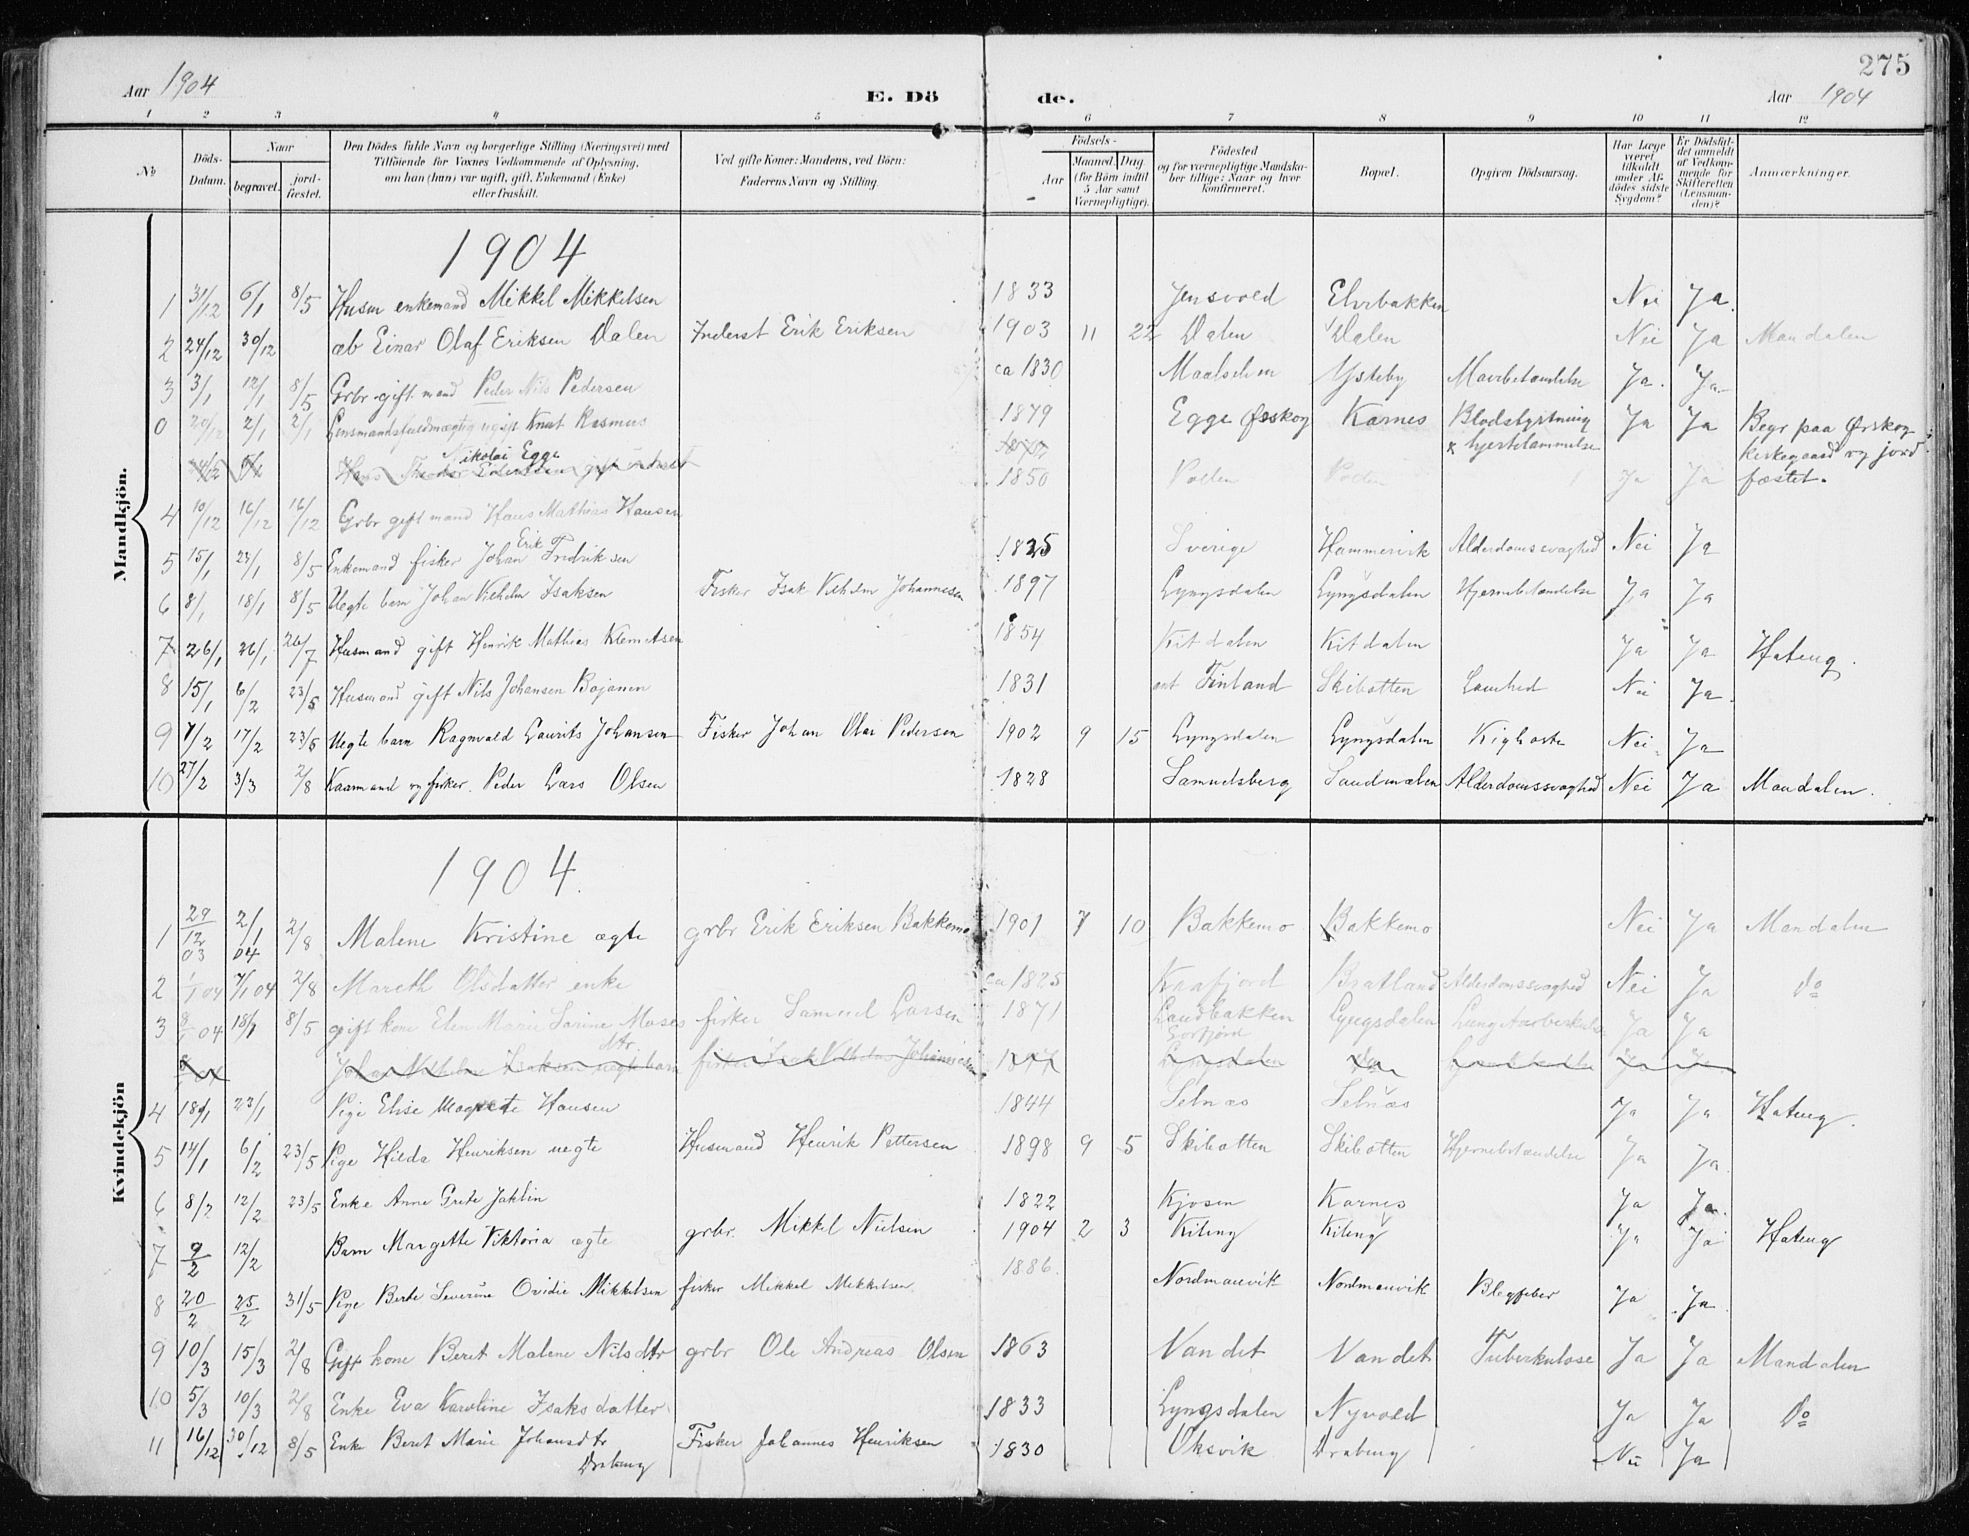 275
Aar 1904 E. Dö de. Aar 1904
1 2 3 4 5 6 7 8 9 10 11 12
No Döds-Datum. Naar begravet. jord-fæstet. Den Dödes fulde Navn og borgerlige Stilling (Næringsvei) med Tilföiende for Voxnes Vedkommende af Oplysning, om han (hun) var ugift, gift, Enkemand (Enke) eller fraskilt. Ved gifte Koner: Mandens, ved Börn: Faderens Navn og Stilling. Födsels- Aar Maaned. Dag. (for Börn indtil 5 Aar samt Værnepligtige). Födested og for værnepligtige Mandskaber tillige: Naar og hvor konfirmeret. Bopæl. Opgiven Dödsaarsag. Har Læge været tilkaldt under Afdödes sidste Sygdom? Er Dödsfaldet anmeldt af Vedkommende for Skifteretten (Lensmanden)? Anmærkninger.
Mandkjön.
1904
1 31/12 6/1 8/5 Husm enkemand Mikkel Mikkelsen 1833 Jensvold Elvebakken Nei Ja.
2 24/12 30/12 æb Einar Olaf Eriksen Dalen Inderst Erik Eriksen 1903 11 22 Dalen Dalen Nei Ja Mandalen
3 3/1 12/1 8/5 Grbr gift mand Peder Nils Pedersen ca 1830 Maalselven Ysteby Mavebetændelse Ja. Ja
0 20/12 2/1 2/1 Lensmandsfuldmægtig ugift Knut Rasmus 1879 Egge Ørskog Karnes Blodstyrtning Ja Ja Begr paa Ørskog
Nikolai Egge hjertelammelse kirkegaard og jord
1850 Polden Polden Ja Ja fæstet.
4 10/12 16/12 16/12 Grbr gift mand Hans Mathias Hansen
5 15/1 24/1 8/5 Enkemand fisker Johan Erik Fredriksen 1825 Sverige Hammervik Alderdomssvaghed Nei Ja
6 8/1 18/1 8/5 Uegte barn Johan Vilhelm Isaksen Fisker Isak Vilhelm Johannesen 1897 Lyngsdalen Lyngsdalen Hjernebetændelse Ja Ja
7 26/1 26/1 26/7 Husmand gift Henrik Mathias Klemetsen 1854 Kitdalen Kitdalen Ja Ja Hateng.
8 15/1 6/2 23/5 Husmand gift Nils Johansen Bajanen 1831 Finland Skibotten Lamhed Nei Ja.
9 7/2 17/2 23/5 Uegte barn Ragnvald Laurits Johansen Fisker Johan Olai Pedersen 1902 9 15 Lyngsdalen Lyngsdalen Kighoste Nei. Ja
10 27/2 3/3 2/8 Kaarmand og fisker. Peder Lars Olsen 1828 Samuelsberg Sandmælen Alderdomssvaghed Nei Ja Mandalen.
Kvindekjön
1904.
1 29/12 03 2/1 04 2/8 Malene Kristine ægte grbr Erik Eriksen Bakkemo 1901 7 10 Bakkemo Bakkemo Nei Ja Mandalen
2 1/1 04 7/1 04 2/8 Mareth Olsdatter enke ca 1825 Kaafjord Bratland Alderdomssvaghed Nei Ja Do
3 8/1 04 18/1 8/5 gift kone Elen Marie Sarine Moses fisker Samuel Larsen 1871 Landbakken Lyngsdalen Lungetuberkulose Ja Ja
dtr. Sorfjord
Johan Vilhelm Isaksen uegte barn fisker Isak Vilhelm Johannesen 1897 Lyngsdalen
4 18/1 23/1 Pige Elise Magrete Hansen 1844 Selnæs Selnæs Ja Ja Hateng.
5 14/1 6/2 23/5 Pige Hilda Henriksen uegte Husmand Henrik Pettersen 1898 9 5 Skibotten Skibotten Hjernebetændelse Ja Ja.
6 8/2 12/2 23/5 Enke Anne Grete Jaklin 1822 Kjosen Karnes Ja Ja.
7 9/2 12/2 Barn Margette Viktoria ægte grbr. Mikkel Nielsen 1904 2 3 Kiteng Kiteng Ja Ja Hateng
8 20/2 25/2 31/5 Pige Berte Severine Ovidie Mikkelsen fisker Mikkel Mikkelsen. 1886. Nordmanvik Nordmanvik Blegfeber Ja Ja.
9 10/3 15/3 2/8 Gift kone Beret Malene Nilsdtr grbr Ole Andreas Olsen 1863 Vandet Vandet Tuberkulose Ja Ja Mandalen
10 5/3 10/3 2/8 Enke Eva Karoline Isaksdatter 1833 Lyngsdalen Nyvold Ja Ja Do
11 16/12 30/12 8/5 Enke Beret Marie Johansdtr Fisker Johannes Henriksen 1830 Oksvik Drabeng Nei Ja
Drabeng